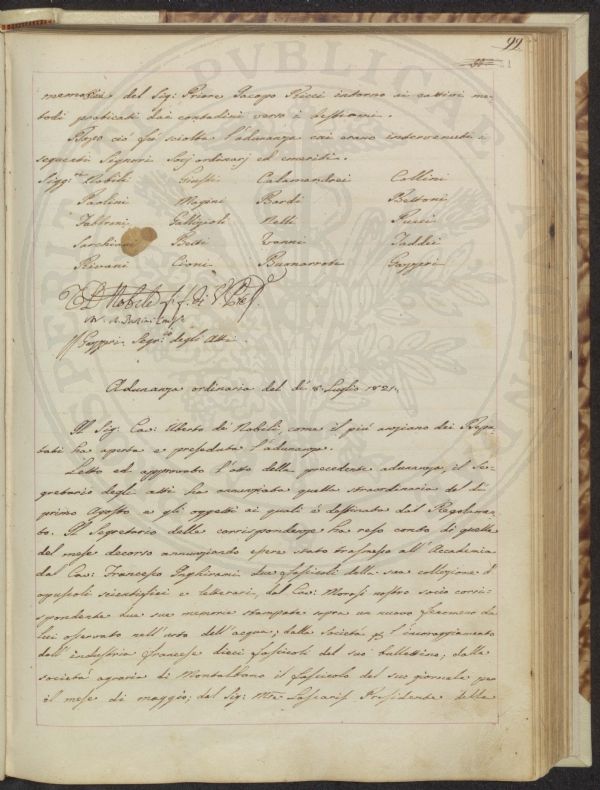 99
memoria del Sig: Priore Jacopo Ricci intorno ai cattivi me-
todi praticati dai contadini verso i bestiami.
Dopo ciò fù sciolta l'adunanza cui erano intervenuti i
seguenti Signori Socj ordinarj ed emeriti.
Sigg:ri Nobili Giusti Calamandrei Collini
Paolini Magini Bardi Bettoni
Fabbroni Gallizioli Nelli Pucci
Sarchiani Betti Vanni Taddei
Rivani Cioni Buonarroti Gazzeri
Gazzeri Segr:io degli Atti.
Adunanza ordinaria del dì 8 Luglio 1821.
Il Sig: Cav: Uberto de' Nobili come il più anziano dei Depu-
tati ha aperta e preseduta l'adunanza.
Letto ed approvato l'atto della precedente adunanza, il Se-
gretario degli atti ha annunziata quella straordinaria del dì
primo Agosto e gli oggetti ai quali è destinata dal Regolamen-
to. Il Segretario delle corrispondenze ha reso conto di quelle
del mese decorso annunziando essere stato trasmesso all'Accademia
dal Cav: Francesco Inghirami due fascicoli della sua collezione d'
opuscoli scientifici e letterari, dal Cav: Morosi nostro socio corri-
spondente due sue memorie stampate sopra un nuovo fenomeno da
lui osservato nell'urto dell'acqua; dalla Società p l'incoraggiamento
dell'industria francese dieci fascicoli del suo bullettino; dalla
società agraria di Montalbano il fascicolo del suo giornale per
il mese di maggio; dal Sig: Presidente della